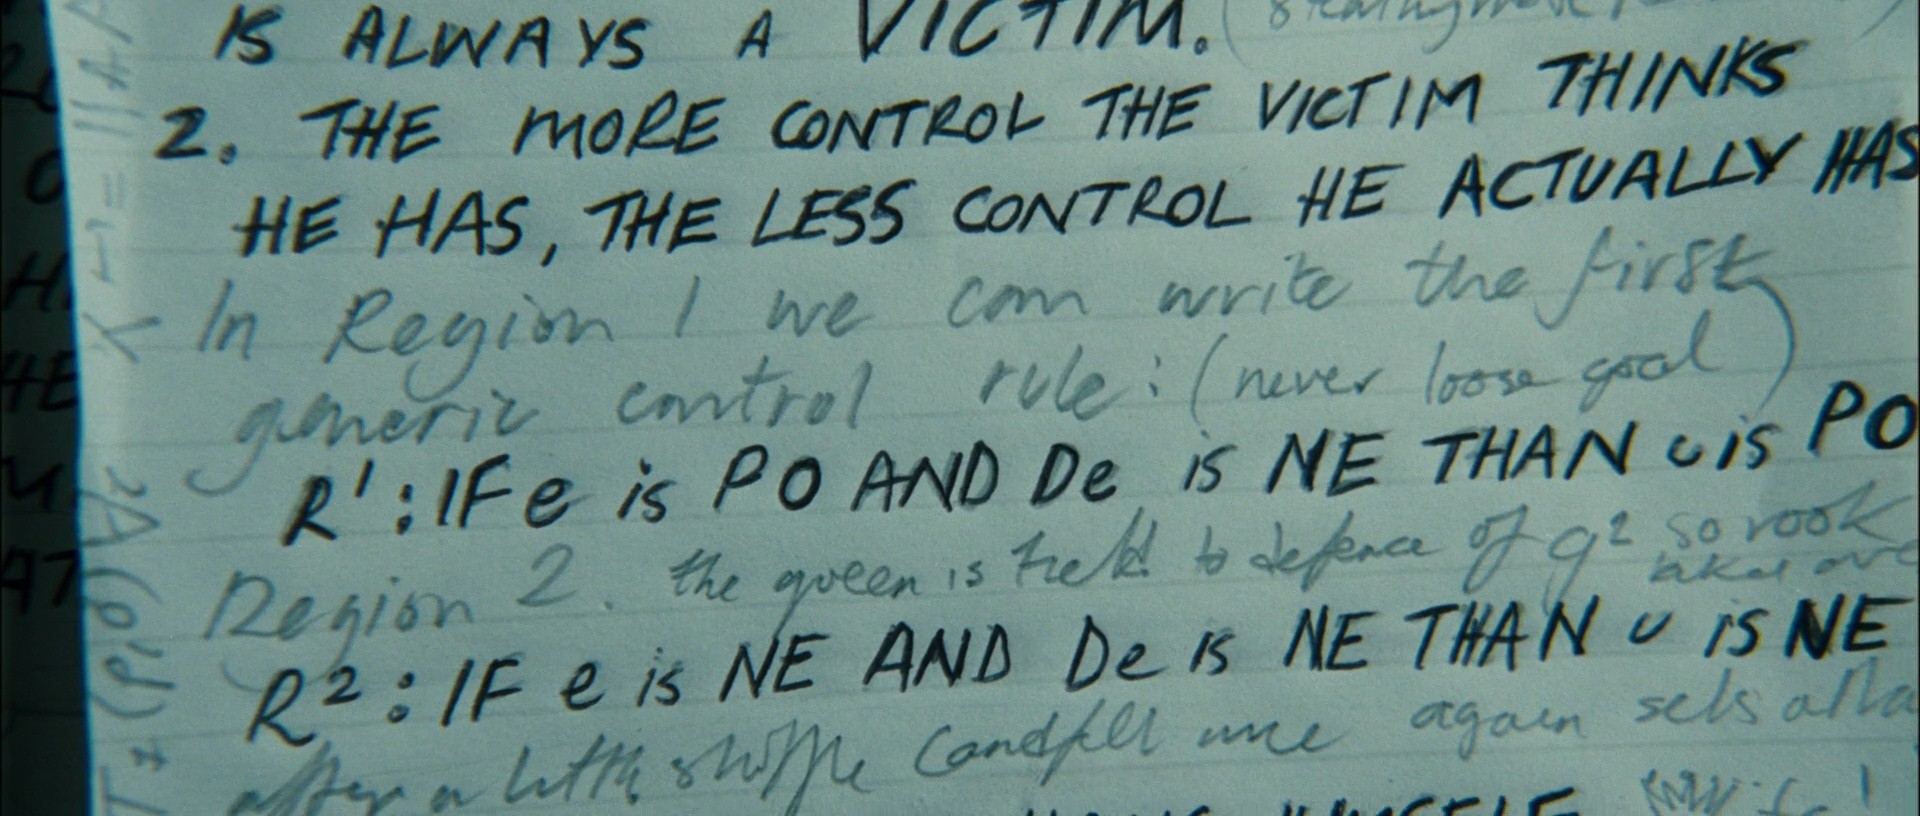 IS ALWAYS A VICTIM.
2. THE MORE CONTROL THE VICTIM THINKS
HE HAS, THE LESS CONTROL HE ACTUALLY HAS
In Region 1 we can write the first
generic control rule: (never loose goal)
R1: IF e is PO AND De is NE THAN u is PO
Region 2. the queen is to defence of g2 so rook
R2: IF e is NE AND De is NE THAN u is NE
after a little shuffle once again sets
HIMSELF